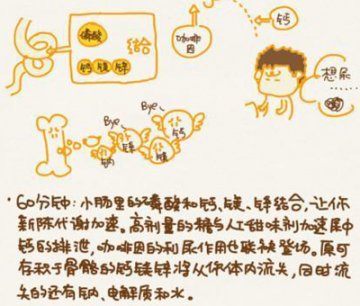 磷酸
结合
钙 镁 锌
咖啡因
钙
想尿
Bye
Bye
Bye
钠
锌
镁
钙
·60分钟：小肠里的磷酸和钙、镁、锌结合，让你
新陈代谢加速。高剂量的糖与人工甜味剂加速尿中
钙的排泄，咖啡因的利尿作用也联袂登场。原可
存积于骨骼的钙镁锌将从你体内流失，同时流
失的还有钠、电解质和水。